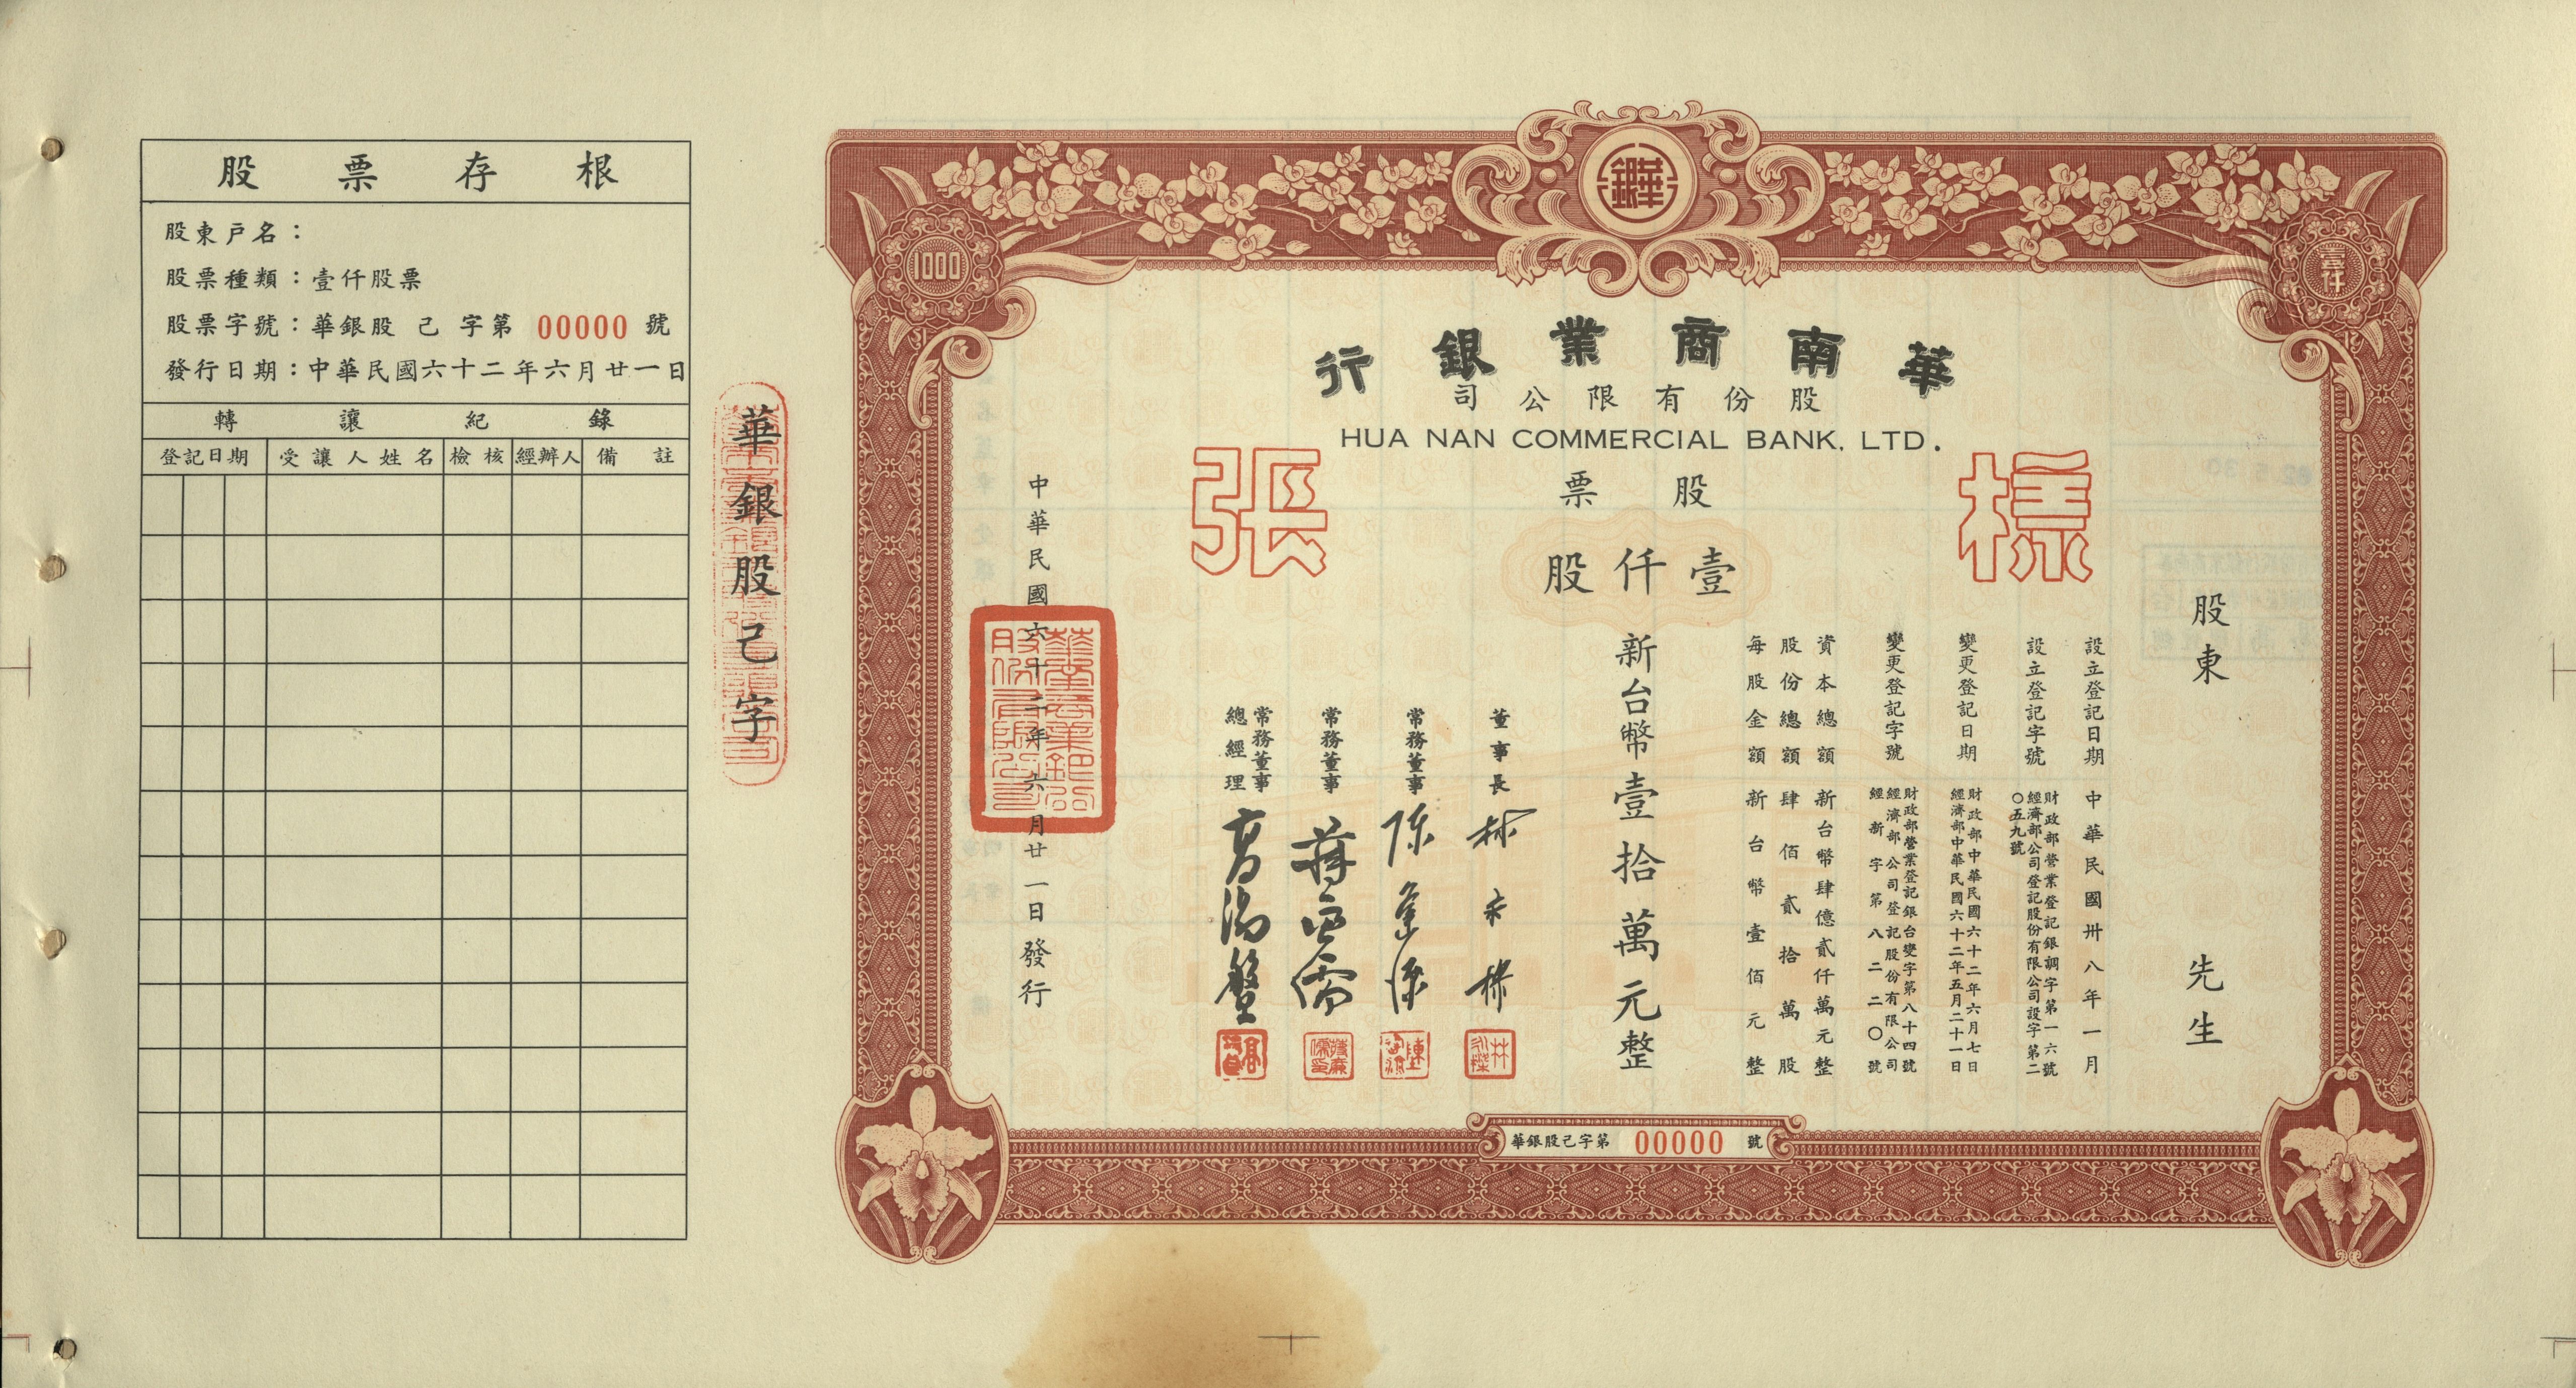 股票存根
股東戶名：
股票種類：壹仟股票
股票字號：華銀股 己 字第 00000 號
發行日期：中華民國六十二年六月廿一日
轉讓紀錄
登記日期 受讓人姓名 檢核 經辦人 備註
華銀股己字
1000
華銀
壹仟
華南商業銀行
股份有限公司
HUA NAN COMMERCIAL BANK, LTD.
股票
樣張
壹仟股
股東 先生
設立登記日期 中華民國卅八年一月
設立登記字號 財政部營業登記銀調字第一六號
經濟部公司登記股份有限公司設字第二〇五九號
變更登記日期 財政部中華民國六十二年六月七日
經濟部中華民國六十二年五月二十一日
變更登記字號 財政部營業登記銀台變字第八十四號
經濟部公司登記股份有限公司
經新字第八二二〇號
資本總額 新台幣肆億貳仟萬元整
股份總額 肆佰貳拾萬股
每股金額 新台幣壹佰元整
新台幣壹拾萬元整
董事長
常務董事
常務董事
常務董事
總經理
中華民國六十二年六月廿一日發行
華銀股己字第 00000 號